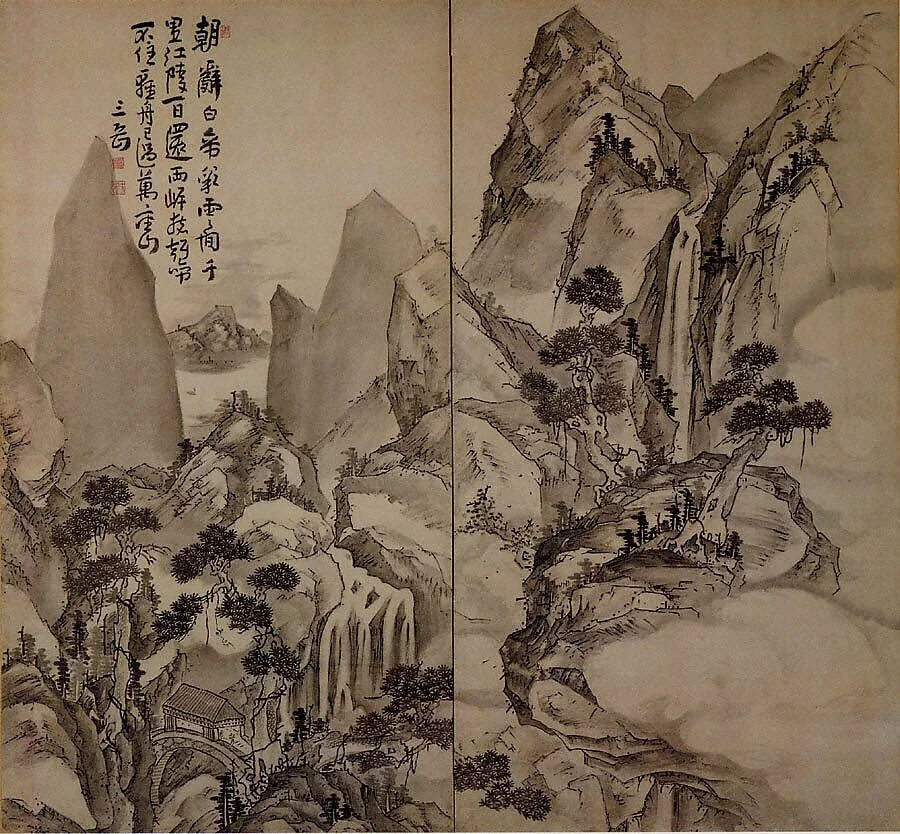 朝辭白帝彩雲間千
里江陵一日還両岸猿聲啼
不住輕舟已過萬重山
三岳